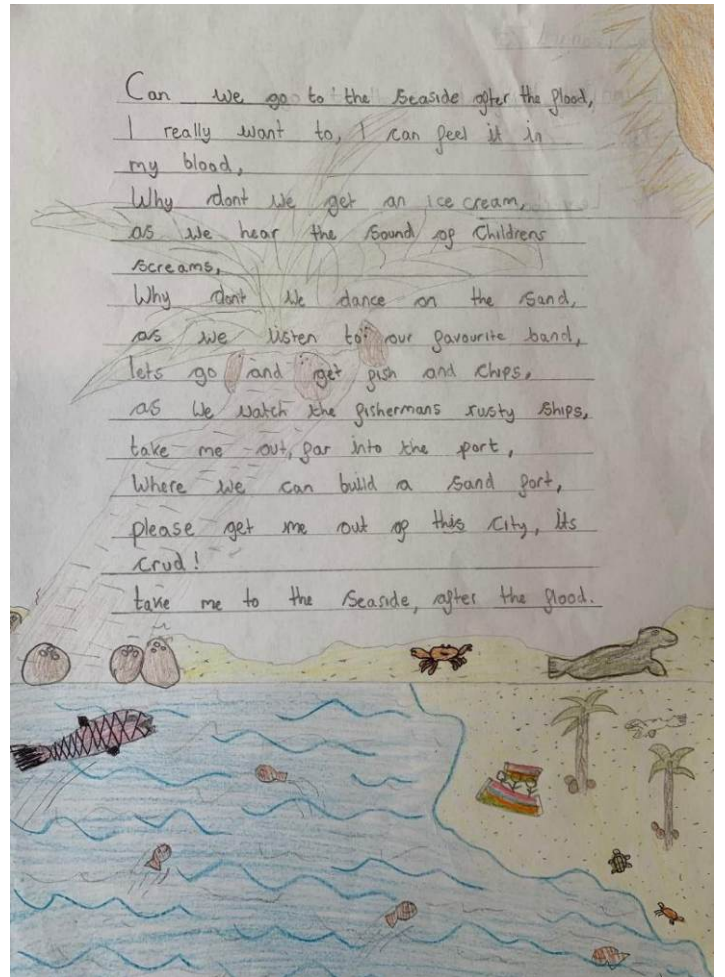 Can we go to the seaside after the flood,
I really want to, I can feel it in
my blood,
Why dont we get an ice cream,
as we hear the sound of Childrens
screams,
Why dont we dance on the sand,
as we listen to our favourite band,
lets go and get fish and chips,
as we watch the fishermans rusty ships,
take me out, far into the port,
Where we can build a sand fort,
please get me out of this city, its
crud!
take me to the seaside, after the flood.